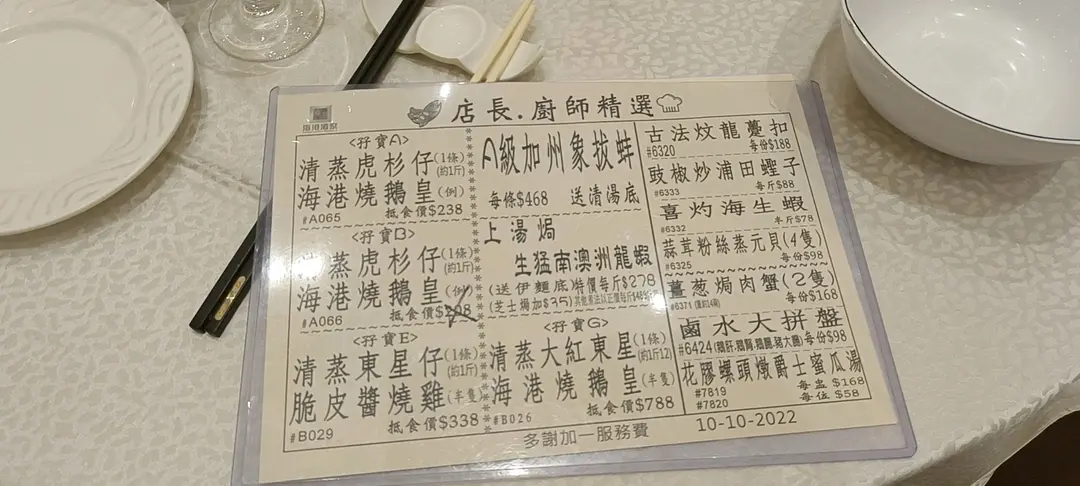 海港酒家
店長.廚師精選
<孖寶A>
清蒸虎杉仔(1條)(約1斤)
海港燒鵝皇(例)
#A065 抵食價$238
<孖寶B>
清蒸虎杉仔(1條)(約1斤)
海港燒鵝皇(例)
#A066 抵食價
<孖寶E>
清蒸東星仔(1條)(約1斤)
脆皮醬燒雞(半隻)
#B029 抵食價$338
A級加州象拔蚌
每條$468 送清湯底
上湯焗
生猛南澳洲龍蝦
(送伊麵底)特價每斤$278
(芝士焗加$35)
<孖寶G>
清蒸大紅東星(1條)(約1斤12)
海港燒鵝皇(半隻)
#B026 抵食價$788
古法炆龍躉扣
#6320 每份$188
豉椒炒浦田蟶子
#6333 每斤$88
喜灼海生蝦
#6332 半斤$78
蒜茸粉絲蒸元貝(4隻)
#6325 每份$98
薑葱焗肉蟹(2隻)
#6371 每份$168
鹵水大拼盤
#6424 每份$98
花膠螺頭燉爵士蜜瓜湯
#7819 每盅$168
#7820 每位$58
多謝加一服務費 10-10-2022